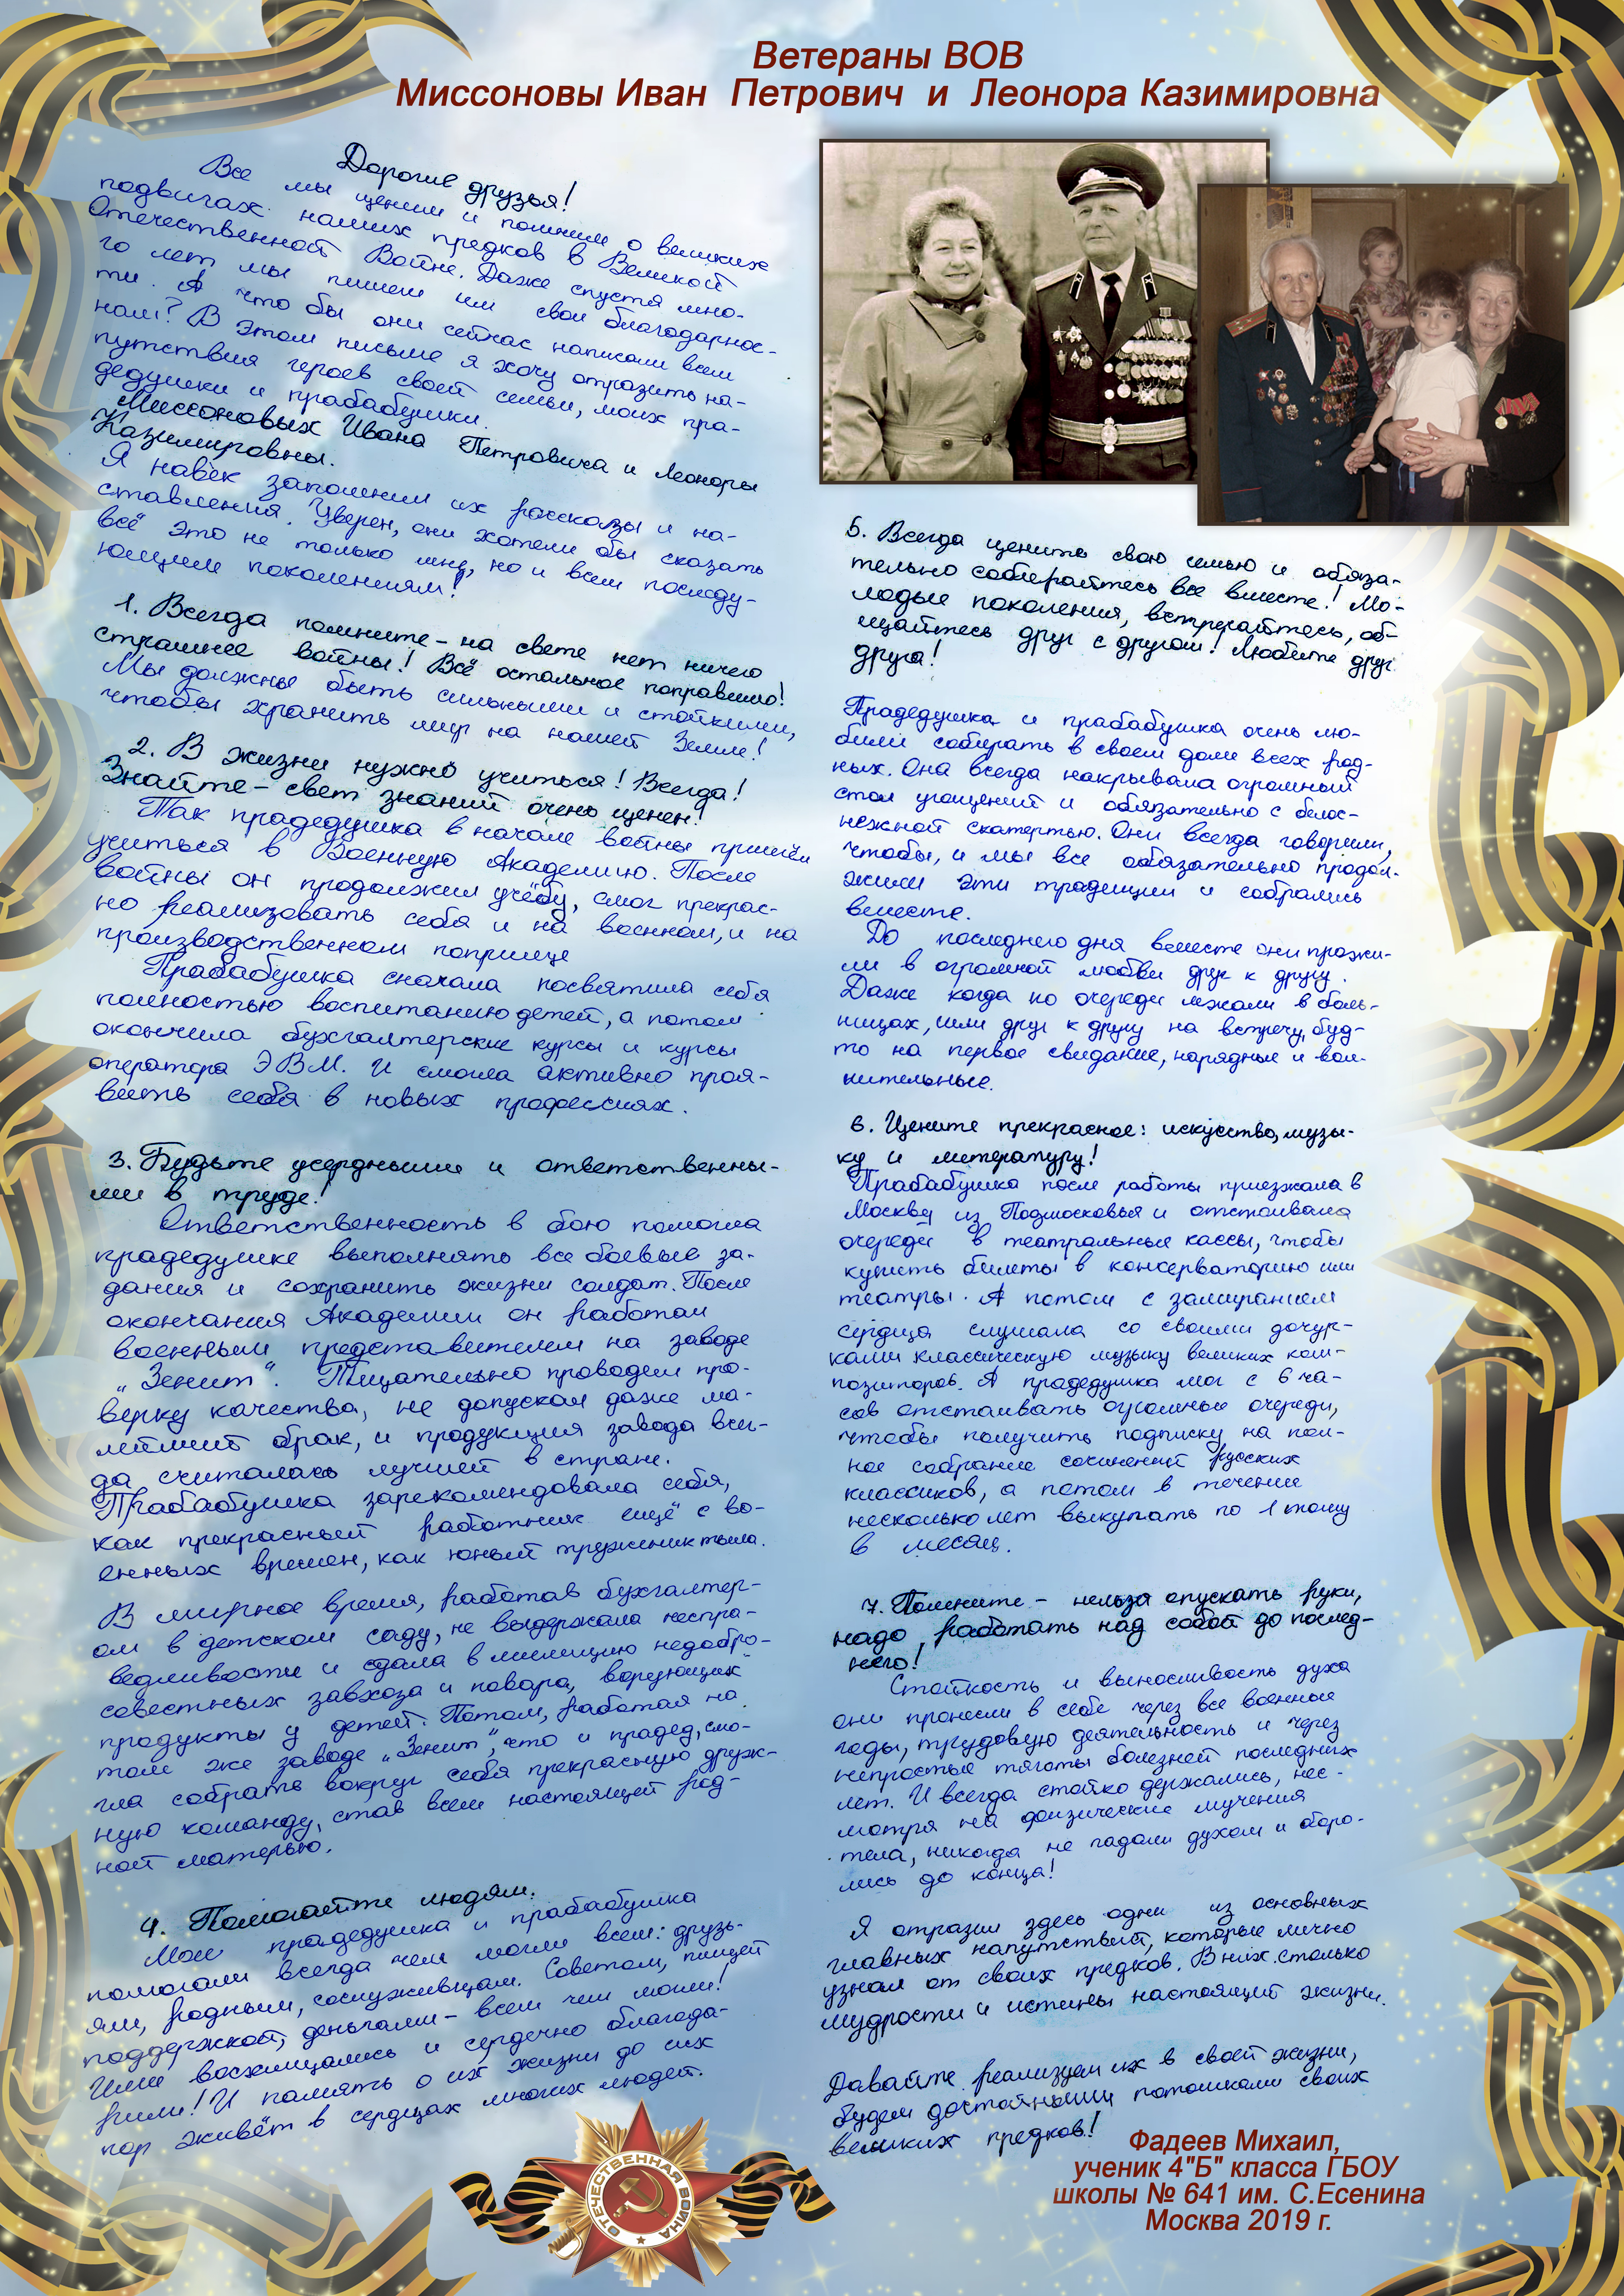 Ветераны ВОВ
Миссоновы Иван Петрович и Леонора Казимировна
Дорогие друзья!
Все мы ценим и помним о великих
подвигах наших предков в Великой
Отечественной Войне. Даже спустя мно-
го лет мы пишем им свои благодарнос-
ти. А что бы они сейчас написали всем
нам? В этом письме я хочу отразить на-
путствия героев своей семьи, моих пра-
дедушки и прабабушки.
Миссоновых Ивана Петровича и Леоноры
Казимировны.
Я навек запомнил их рассказы и на-
ставления. Уверен, они хотели бы сказать
всё это не только мне, но и всем последу-
ющим поколениям!
1. Всегда помните - на свете нет ничего
страшнее войны! Всё остальное поправимо!
Мы должны быть сильными и стойкими,
чтобы хранить мир на нашей Земле!
2. В жизни нужно учиться! Всегда!
Знайте - свет знаний очень ценен!
Так прадедушка в начале войны пришёл
учиться в Военную Академию. После
войны он продолжил учёбу, смог прекрас-
но реализовать себя и на военном, и на
производственном поприще
Прабабушка сначала посвятила себя
полностью воспитанию детей, а потом
окончила бухгалтерские курсы и курсы
оператора ЭВМ. И смогла активно проя-
вить себя в новых профессиях.
3. Будьте усердными и ответственны-
ми в труде!
Ответственность в бою помогла
прадедушке выполнять все боевые за-
дания и сохранить жизни солдат. После
окончания Академии он работал
военным представителем на заводе
„Зенит“. Тщательно проводил про-
верку качества, не допуская даже ма-
лейший брак, и продукция завода всег-
да считалась лучшей в стране.
Прабабушка зарекомендовала себя,
как прекрасный работник ещё с во-
енных времен, как юный труженик тыла.
В мирное время, работав бухгалтер-
ом в детском саду, не выдержала неспра-
ведливости и сдала в милицию недобро-
совестных завхоза и повара, ворующих
продукты у детей. Потом, работая на
том же заводе „Зенит“, что и прадед, смо-
гла собрать вокруг себя прекрасную друж-
ную команду, став всем настоящей род-
ной матерью.
4. Помогайте людям.
Мои прадедушка и прабабушка
помогали всегда чем могли всем: друзь-
ям, родным, сослуживцам. Советом, пищей
поддержкой, деньгами - всем чем могли!
Ими восхищались и сердечно благода-
рили! И память о их жизни до сих
пор живёт в сердцах многих людей.
5. Всегда ценить свою семью и обяза-
тельно собирайтесь все вместе! Мо-
лодые поколения, встречайтесь, об-
щайтесь друг с другом! Любите друг
друга!
Прадедушка и прабабушка очень лю-
били собирать в своем доме всех род-
ных. Она всегда накрывала огромный
стол угощений и обязательно с белос-
нежной скатертью. Они всегда говорили,
чтобы, и мы все обязательно продол-
жили эти традиции и собрались
вместе.
До последнего дня вместе они прожи-
ли в огромной любви друг к другу.
Даже когда по очереди лежали в боль-
ницах, шли друг к другу на встречу, буд-
то на первое свидание, нарядные и вол-
нительные.
6. Цените прекрасное: искусство, музы-
ку и литературу!
Прабабушка после работы приезжала в
Москву из Подмосковья и отстаивала
очереди в театральные кассы, чтобы
купить билеты в консерваторию или
театры. А потом с замиранием
сердца слушала со своими дочур-
ками классическую музыку великих ком-
позиторов. А прадедушка мог с 6 ча-
сов отстаивать огромные очереди,
чтобы получить подписку на пол-
ное собрание сочинений русских
классиков, а потом в течение
несколько лет выкупать по 1 тому
в месяц.
7. Помните - нельзя опускать руки,
надо работать над собой до послед-
него!
Стойкость и выносливость духа
они пронесли в себе через все военные
годы, трудовую деятельность и через
непростые тяготы болезней последних
лет. И всегда стойко держались, нес-
мотря на физические мучения
тела, никогда не падали духом и боро-
лись до конца!
Я отразил здесь одни из основных
главных напутствий, которые лично
узнал от своих предков. В них столько
мудрости и истины настоящей жизни.
Давайте реализуем их в своей жизни,
будем достойными потомками своих
великих предков!
Фадеев Михаил,
ученик 4"Б" класса ГБОУ
школы № 641 им. С.Есенина
Москва 2019 г.
ОТЕЧЕСТВЕННАЯ ВОЙНА